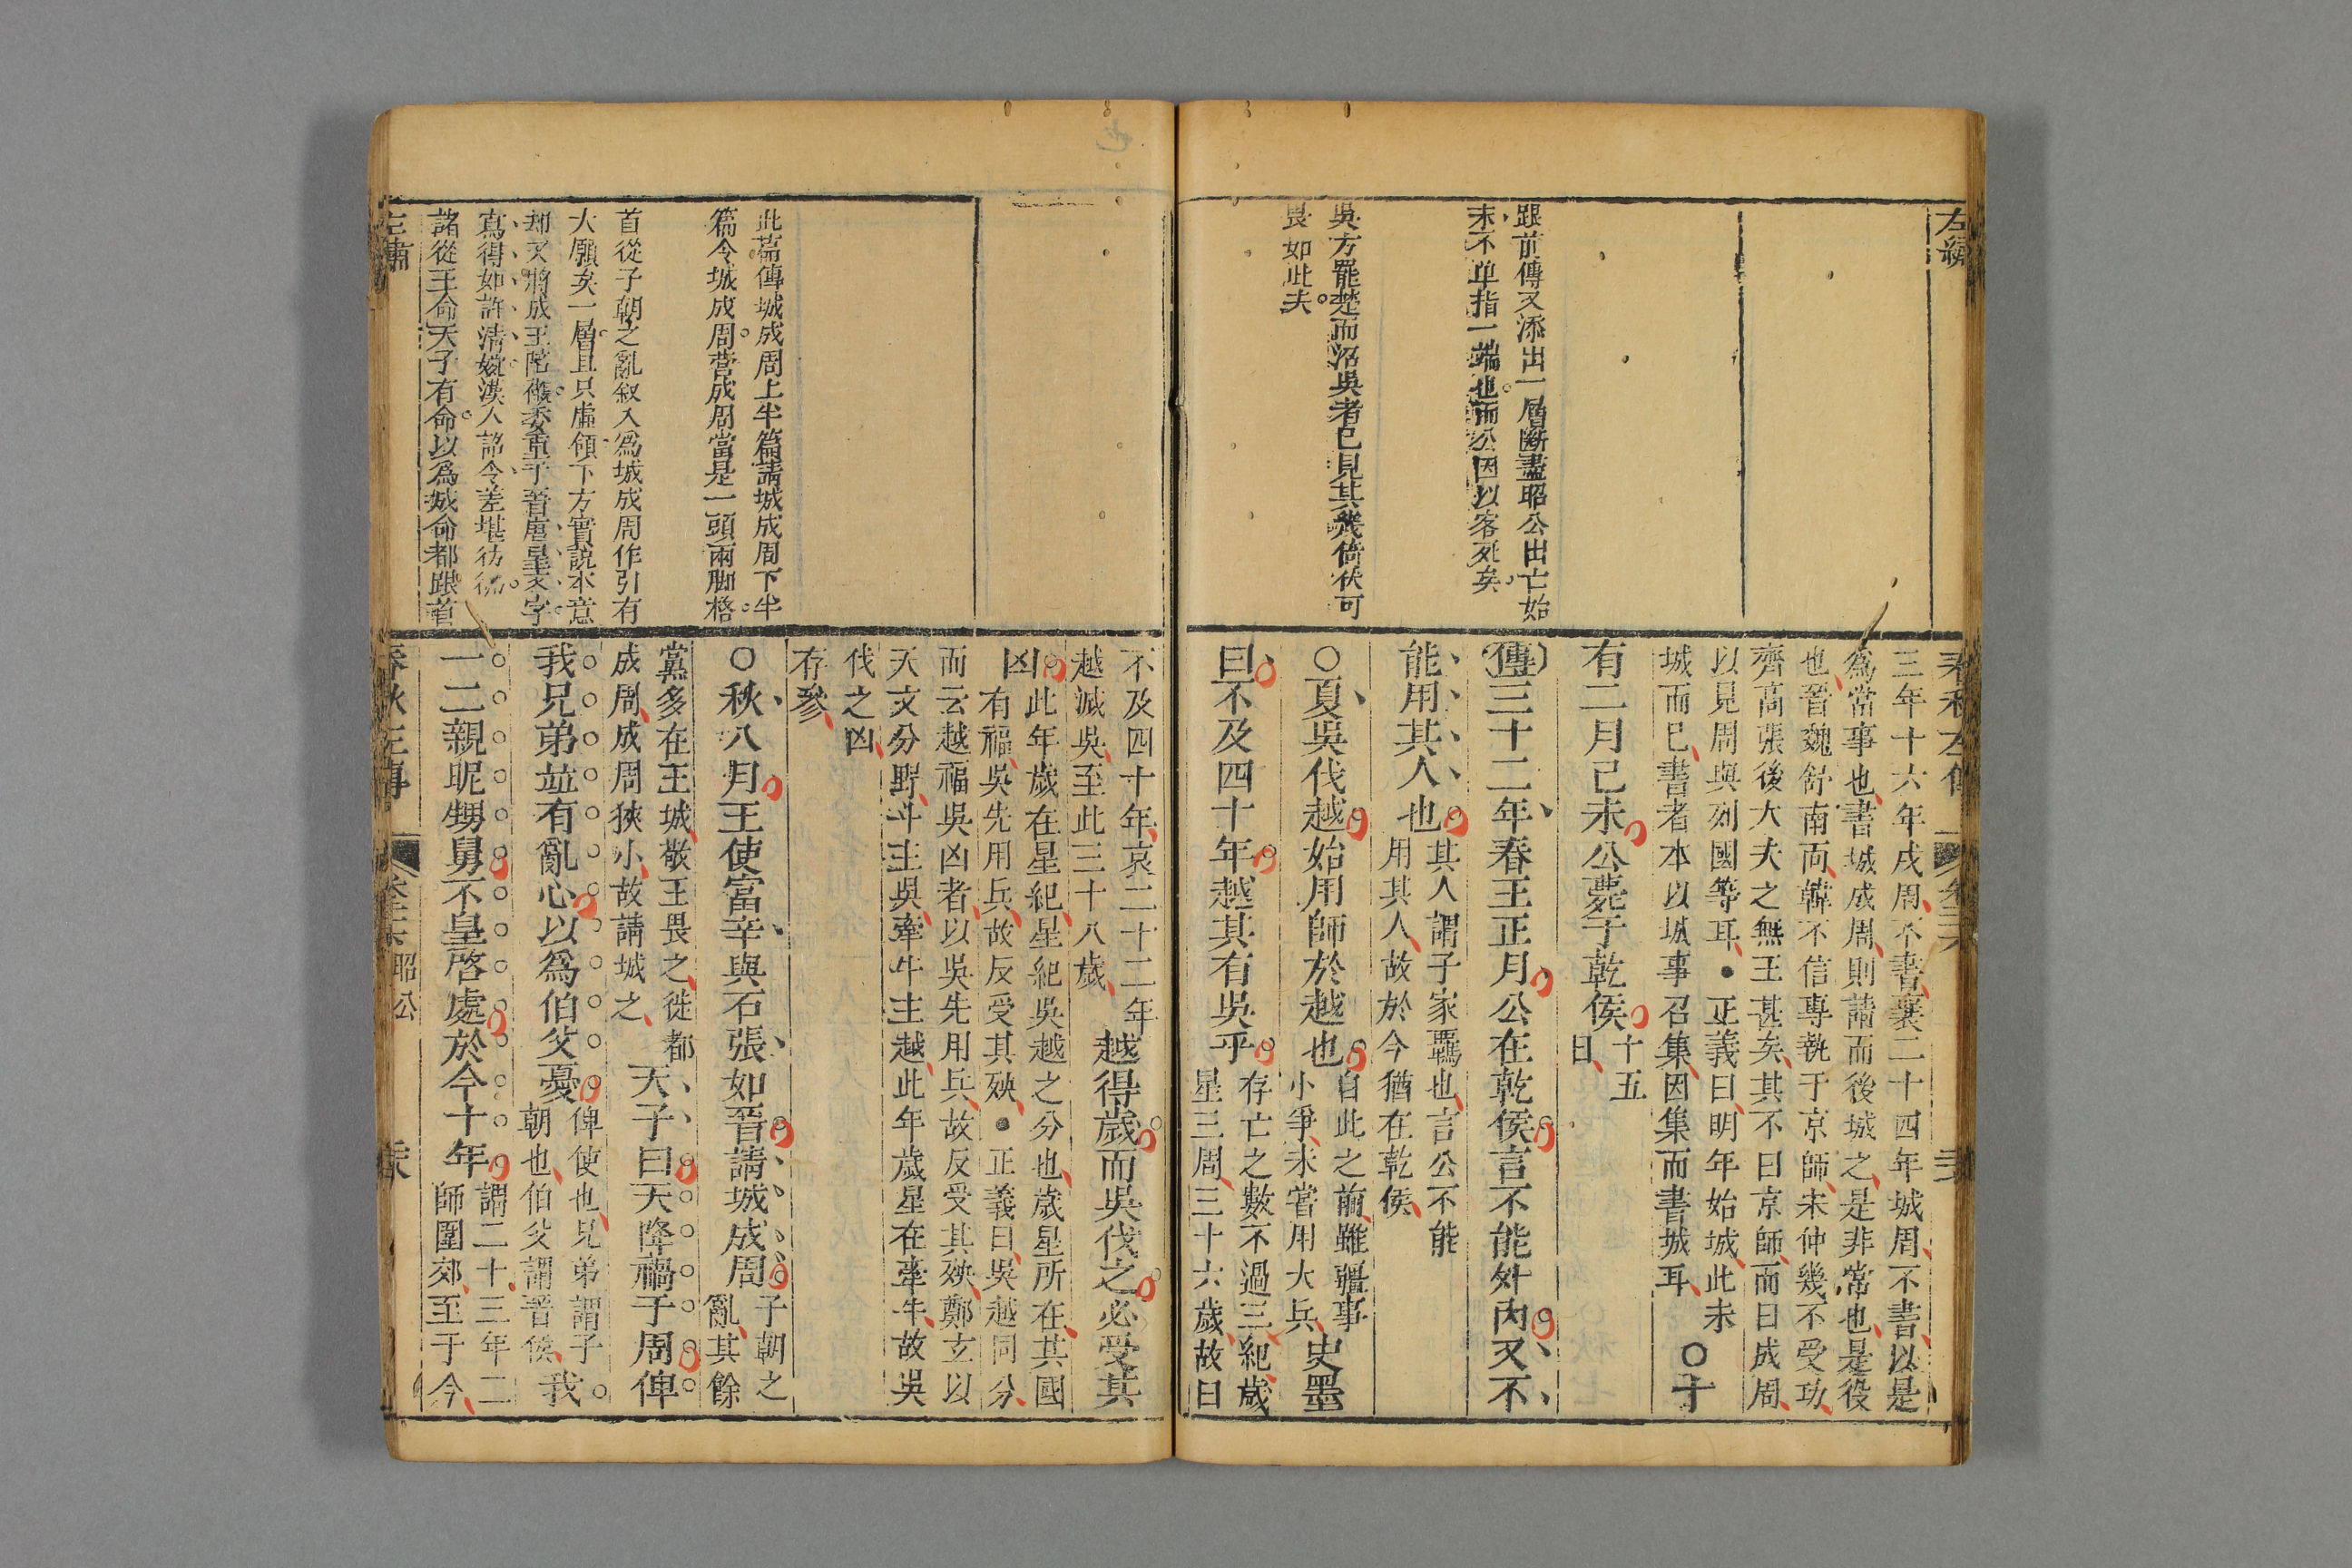 左繡
跟前傳又添出一層斷盡昭公出亡始
末不单指一端也而公因以客死矣
吳方罷楚而沼吳者已見其幾倚伏可
畏如此夫
春秋左傳
三年十六年戍周不書襄二十四年城周不書以是
爲當事也書城成周則請而後城之是非常也是役
也晉魏舒南面韓不信專執于京師宋仲幾不受功
齊高張後大夫之無王甚矣其不曰京師而曰成周
以見周與列國等耳●正義曰明年始城此未
城而已書者本以城事召集因集而書城耳
○十
有二月己未公薨于乾侯
十五
日
傳三十二年春王正月公在乾侯言不能外內又不
能用其人也
其人謂子家覊也言公不能
用其人故於今猶在乾侯
○夏吳伐越始用師於越也
自此之前雖疆事
小爭未嘗用大兵
史墨
曰不及四十年越其有吳乎
存亡之數不過三紀歲
星三周三十六歲故曰
不及四十年哀二十二年
越滅吳至此三十八歲
越得歲而吳伐之必受其
凶
此年歲在星紀星紀吳越之分也歲星所在其國
有福吳先用兵故反受其殃●正義曰吳越同分
而云越福吳凶者以吳先用兵故反受其殃鄭玄以
天文分野斗主吳牽牛主越此年歲星在牽牛故吳
伐之凶
存參
○秋八月王使富辛與石張如晉請城成周
子朝之
亂其餘
黨多在王城敬王畏之徙都
成周成周狹小故請城之
天子曰天降禍于周俾
我兄弟並有亂心以爲伯父憂
俾使也兄弟謂子
朝也伯父謂晉侯
我
一二親昵甥舅不皇啓處於今十年
謂二十三年二
師圍郊至于今
此篇傳城成周上半篇請城成周下半
篇令城成周營成周當是一頭兩脚格
首從子朝之亂叙入爲城成周作引有
大願矣一層且只虛領下方實說本意
却又將成王陪襯委重于晉唐皇文字
寫得如許清婉漢人詔令差堪彷彿
諸從王命天子有命以爲城命都跟首
左繡
春秋左傳
昭公